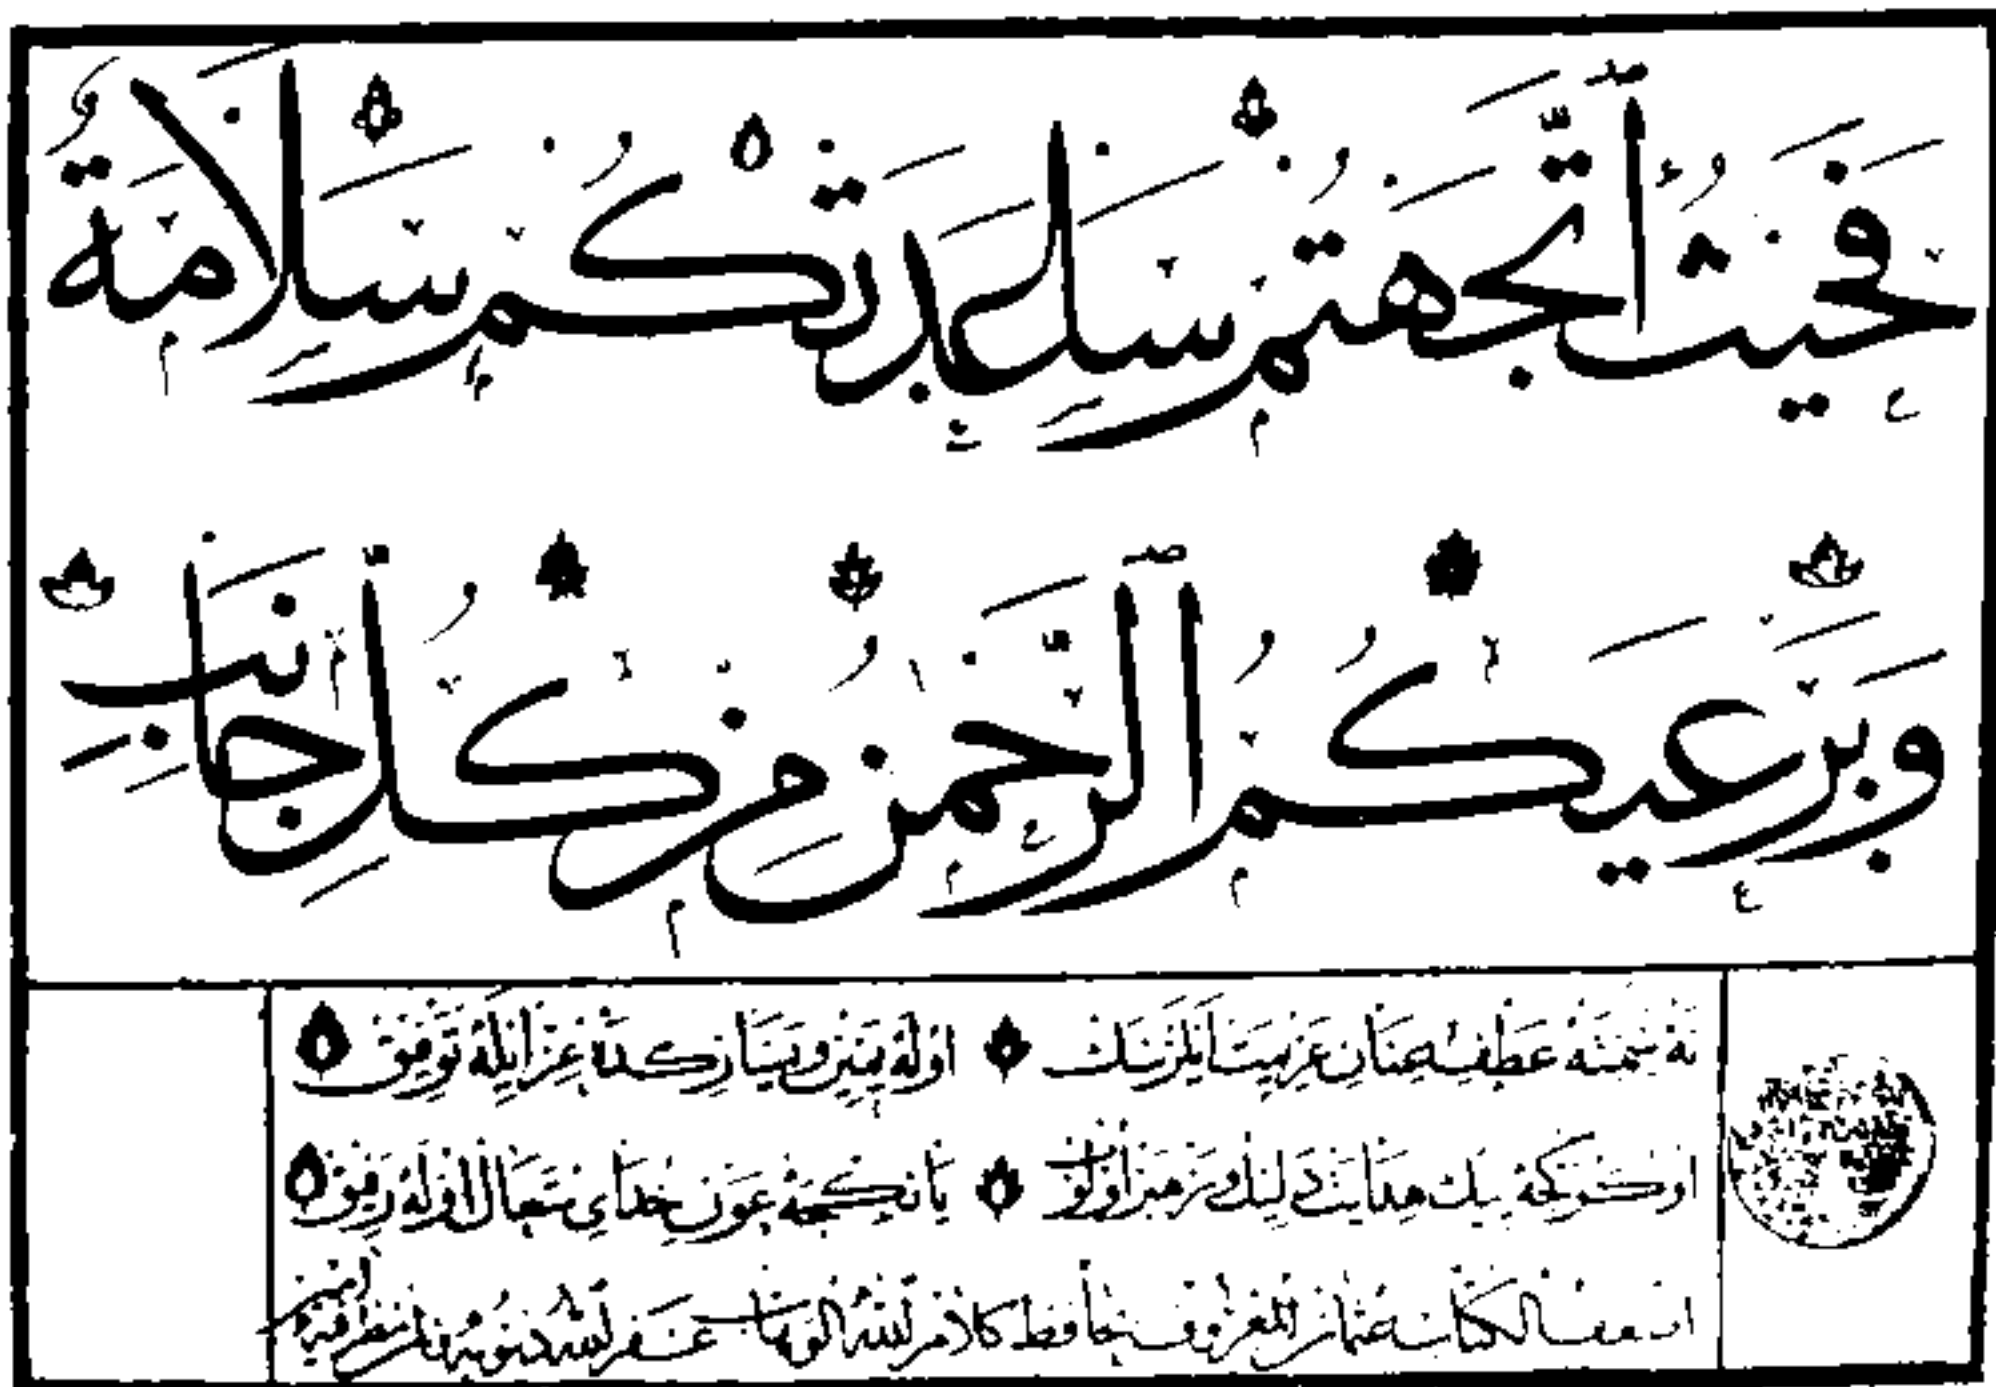 فَحَيْثُ ٱتَّجَهْتُمْ سَاعَدَتْكُمْ سَلَامَةٌ
وَيَرْعَيكُمُ ٱلرَّحْمٰنُ مِنْ كُلِّ جَانِبٍ
نه سمته عطف عنان عزيمت ايلرسك اوله يمين ويساركده عز ايله توفيق
هدايت دليل ورهبر اولوب عون خداى متعال اوله رفيق
اضعف الكتاب عثمان المعروف بحافظ كلام الله الوهاب غفر الله ذنوبه